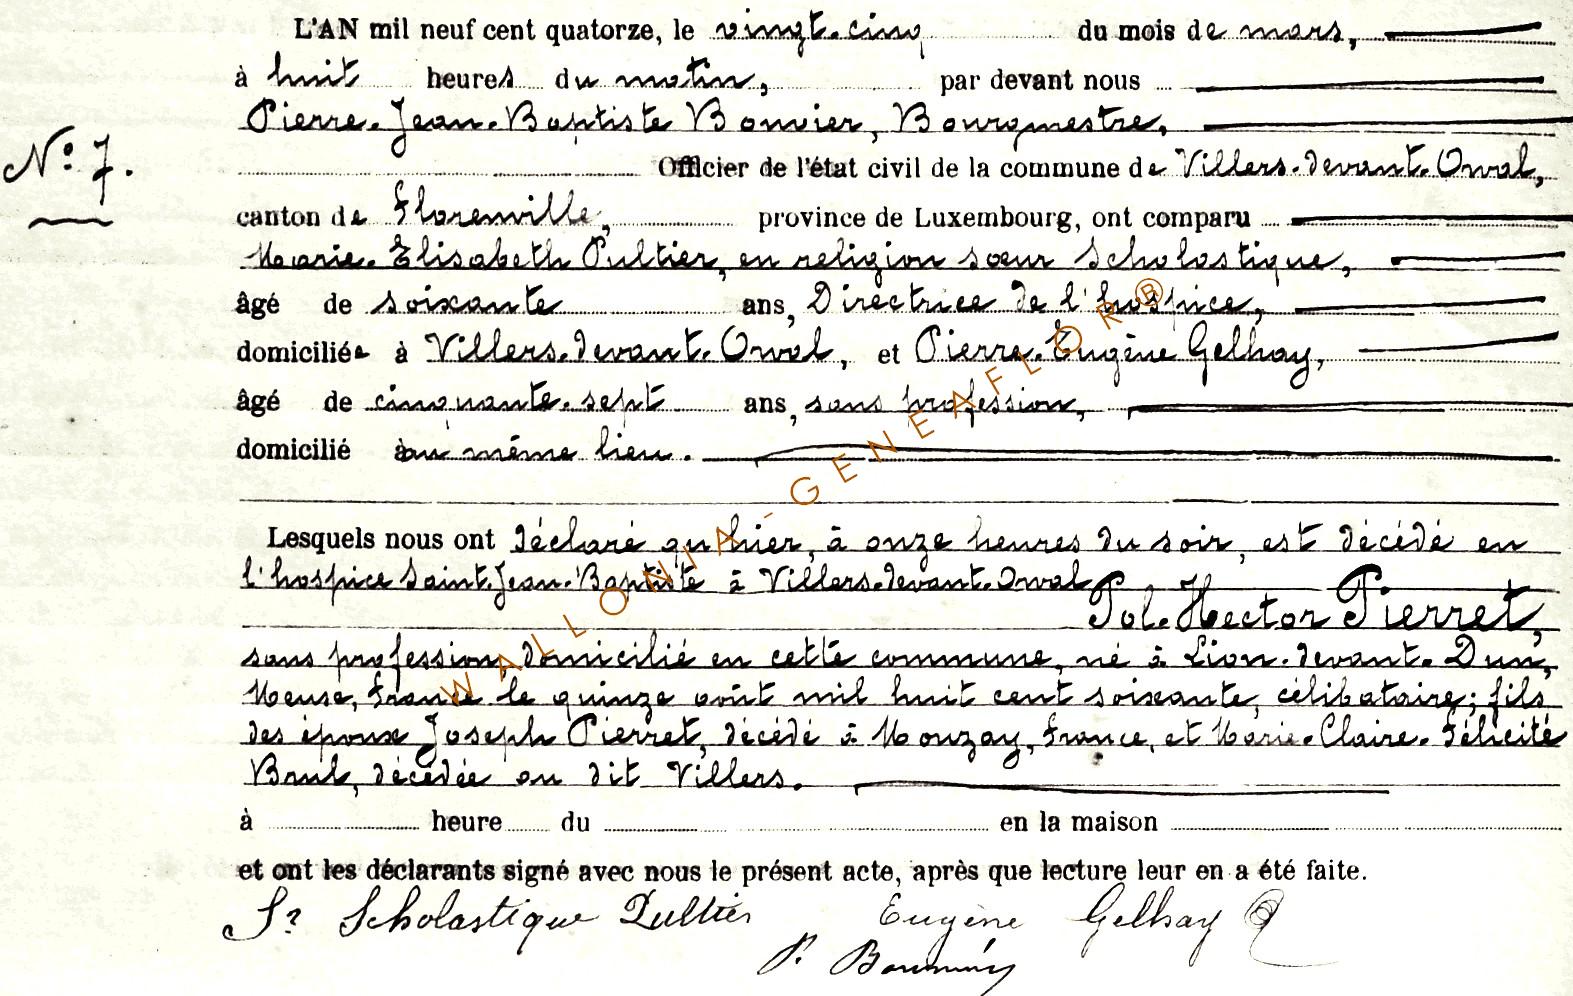 L'AN mil neuf cent quatorze, le vingt-cinq du mois de mars,
à huit heures du matin, par devant nous
Pierre-Jean-Baptiste Bouvier, Bourgmestre,
N° 7.
Officier de l'état civil de la commune de Villers-devant-Orval,
canton de Florenville, province de Luxembourg, ont comparu
Marie-Elisabeth Pultier, en religion sœur Scholastique,
âgé de soixante ans, Directrice de l'hospice,
domiciliée à Villers-devant-Orval, et Pierre-Eugène Gelhay,
âgé de cinquante-sept ans, sans profession,
domicilié au même lieu.
Lesquels nous ont déclaré qu'hier, à onze heures du soir, est décédé en
l'hospice Saint-Jean-Baptiste à Villers-devant-Orval
Pol-Hector Pierret,
sans profession, domicilié en cette commune, né à Lion-devant-Dun,
Meuse, France le quinze août mil huit cent soixante, célibataire; fils
des époux Joseph Pierret, décédé à Mouzay, France, et Marie-Claire-Félicité
Brul, décédée au dit Villers.
à heure du en la maison
et ont les déclarants signé avec nous le présent acte, après que lecture leur en a été faite.
Sr Scholastique Pultier Eugène Gelhay
P. Bouvier
WALLONIA-GENEAFLOR®